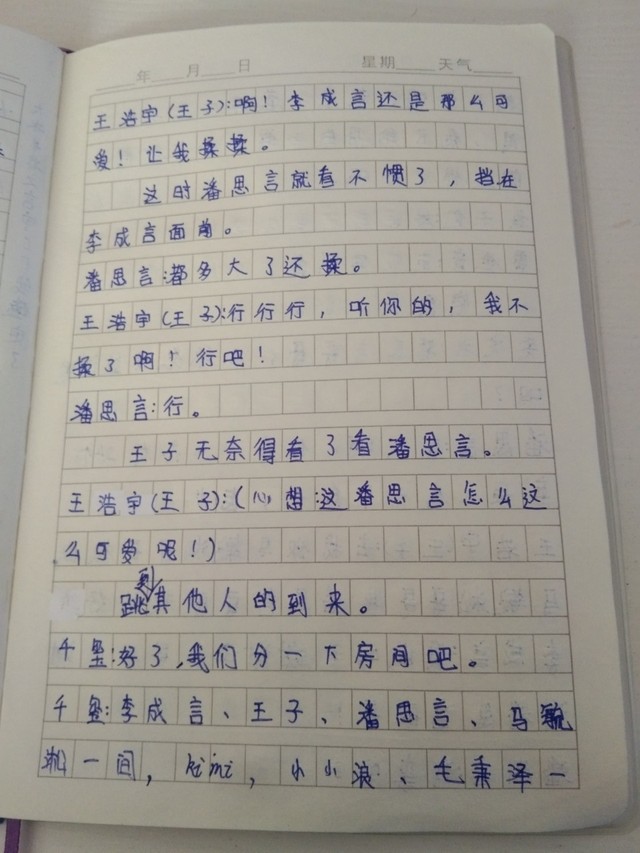 年 月 日 星期 天气
王浩宇(王子):啊!李成言还是那么可
爱!让我揉揉。
这时潘思言就看不惯了,挡在
李成言面前。
潘思言:都多大了还揉。
王浩宇(王子):行行行,听你的,我不
揉了啊!行吧!
潘思言:行。
王子无奈得看了看潘思言。
王浩宇(王子):(心想:这潘思言怎么这
么可爱呢!)
跳到其他人的到来。
千玺:好了,我们分一下房间吧。
千玺:李成言、王子、潘思言、马毓
淞一间,kimi,小小浪、毛秉泽一